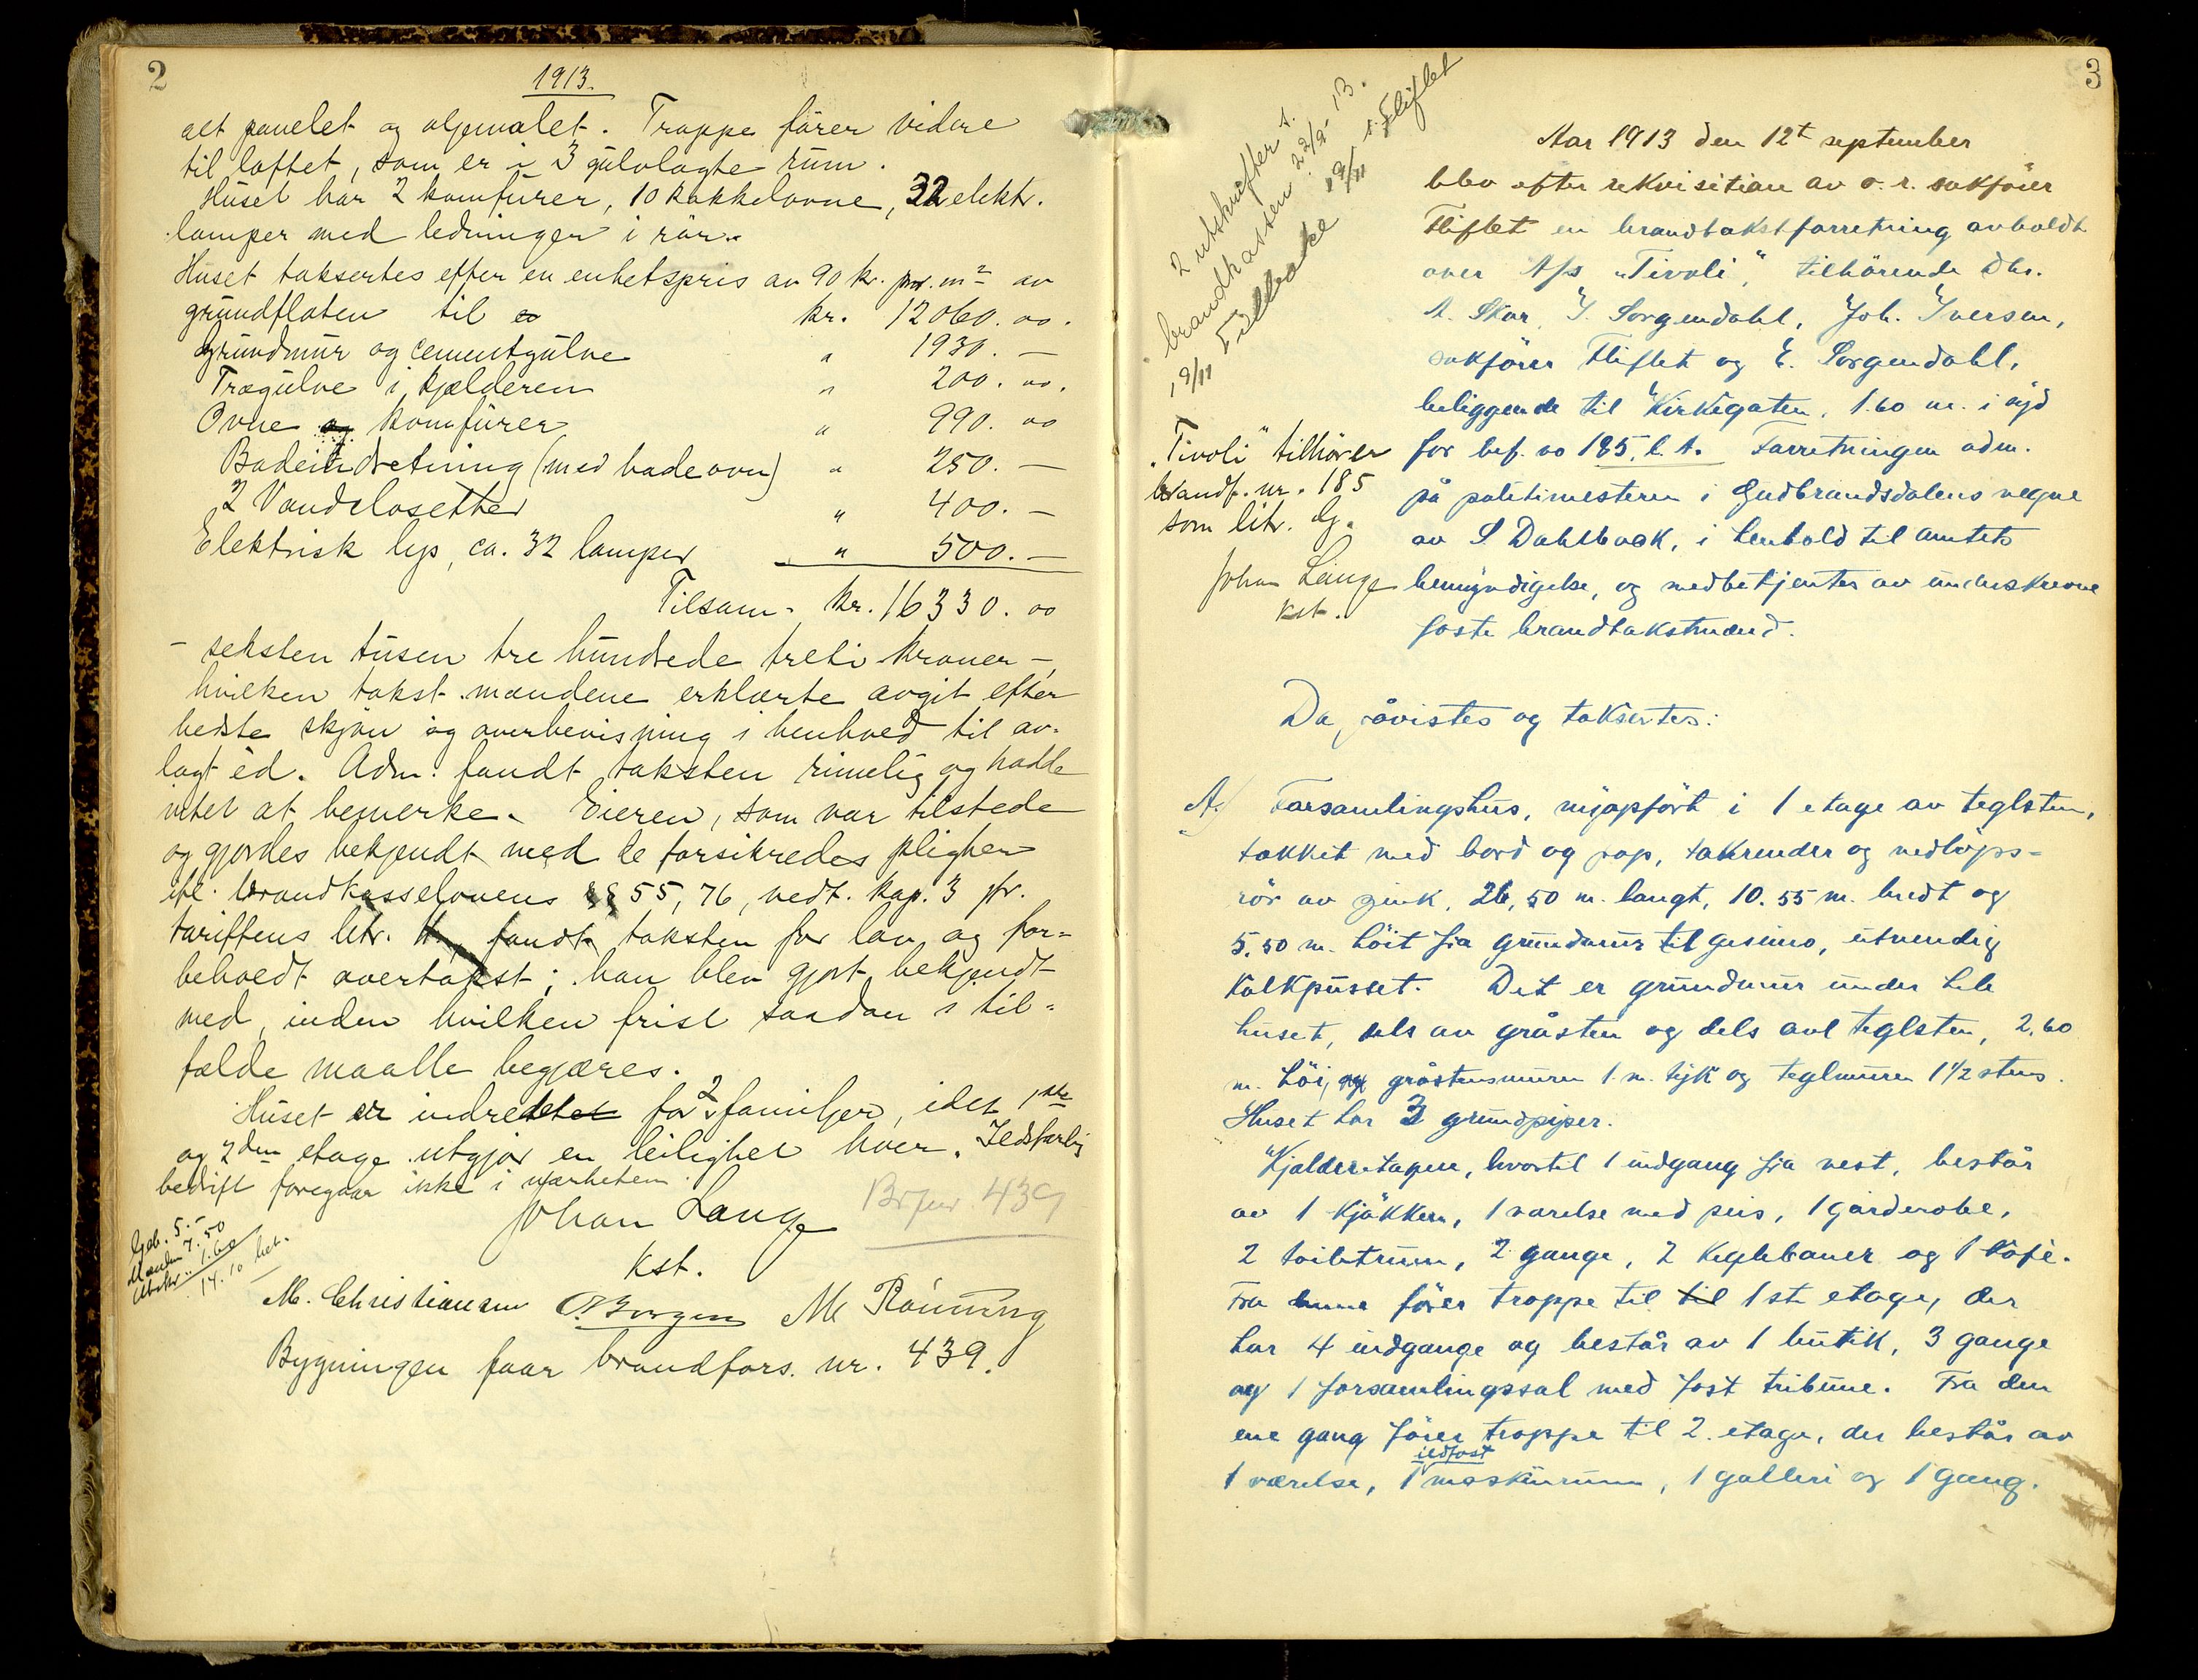 2
1913.
alt panelet og oljemalet. Trappe fører videre
til loftet, som er i 3 gulvlagte rum.
Huset har 2 komfurer, 10 kakkelovne, 32 elektr.
lamper med ledninger i rør.
Huset taksertes efter en enhetspris av 90 kr. pr. m² av
grundflaten til kr. 12060.00.
Grundmur og cementgulve " 1930.—
Trægulve i kjælderen " 200.00.
Ovne og komfurer " 990.00
Badeindretning (med badeovn) " 250.—
2 Vandclosetter " 400.—
Elektrisk lys, ca. 32 lamper " 500.—
Tilsam. kr. 16330.00
– seksten tusen tre hundrede treti kroner –,
hvilken takst mændene erklærte avgit efter
bedste skjøn og overbevisning i henhold til av-
lagt ed. Adm. fandt taksten rimelig og hadde
intet at bemerke. Eieren, som var tilstede
og gjordes bekjendt med de forsikredes pligter
ifl. brandkasselovens §§ 55, 76, vedt. kap. 3 jfr.
tariffens litr. H, fandt taksten for lav og for-
beholdt overtakst; han blev gjort bekjendt
med, inden hvilken frist saadan i til-
fælde maatte begjæres.
Huset er indredet for 2 familjer, idet 1ste
og 2den etage utgjør en leilighet hver. Ildsfarlig
bedrift foregaar ikke i nærheten.
Johan Lange
Kst.
Br.fnr. 439
Geb. 5.-
Mænden 7.50
Utskr. 1.60
14.10 bet.
M. Christiansen O. Borgen M Rönning
Bygningen faar brandfors. nr. 439.
3
2 utskrifter t.
brandkassen 22/9-13.
19/11 Tilbake 19/11 t. Fliflet
Aar 1913 den 12t september
blev efter rekvisition av o.r. sakfører
Fliflet en brandtakstforretning avholdt
over A/s "Tivoli", tilhörende dhr.
A. Skar, I. Sorgendahl, Joh. Iversen,
sakförer Fliflet og E. Sorgendahl,
beliggende til Kirkegaten, 1.60 m. i syd
for bef. no 185, l. A. Forretningen adm.
på politimesteren i Gudbrandsdalens vegne
av S. Dahlbakk, i henhold til amtets
bemyndigelse, og medbetjentes av underskrevne
faste brandtakstmænd.
"Tivoli" tilhører
brandf. nr. 185
som litr. G.
Johan Lange
Kst.
Da påvistes og taksertes:
A/ Forsamlingshus, nyopført i 1 etage av teglsten,
takket med bord og pap, takrender og nedløps-
rör av zink, 26,50 m. langt, 10.55 m. bredt og
5.50 m. höit fra grundmur til gesims, utvendig
kalkpusset. Det er grundmur under hele
huset, dels av gråsten og dels avl teglsten, 2.60
m. höi, gråstensmuren 1 m. tyk og teglmuren 1½ stens.
Huset har 3 grundpiper.
Kjælderetagen, hvortil 1 indgang fra vest, består
av 1 kjökken, 1 værelse med peis, 1 garderobe,
2 toiletrum, 2 gange, 2 keglebaner og 1 kafé.
Fra denne förer trappe til til 1ste etage, der
har 4 indgange og består av 1 butik, 3 gange
og 1 forsamlingssal med fast tribune. Fra den
ene gang förer trappe til 2. etage, der består av
1 værelse, 1 ildfast maskinrum, 1 galleri og 1 gang.